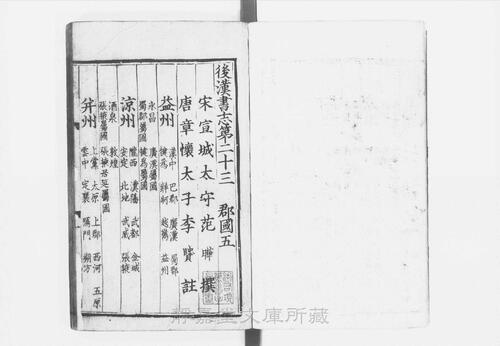 後漢書志第二十三　郡國五
宋宣城太守范曄撰
唐章懷太子李賢註
益州　漢中　巴郡　廣漢　蜀郡
犍爲　牂牁　越巂　益州
永昌　廣漢屬國
蜀郡屬國　犍爲屬國
涼州　隴西　漢陽　武都　金城
安定　北地　武威　張掖
酒泉　敦煌
張掖屬國　張掖居延屬國
并州　上黨　太原　上郡　西河　五原
雲中　定襄　鴈門　朔方
靜嘉堂文庫所藏